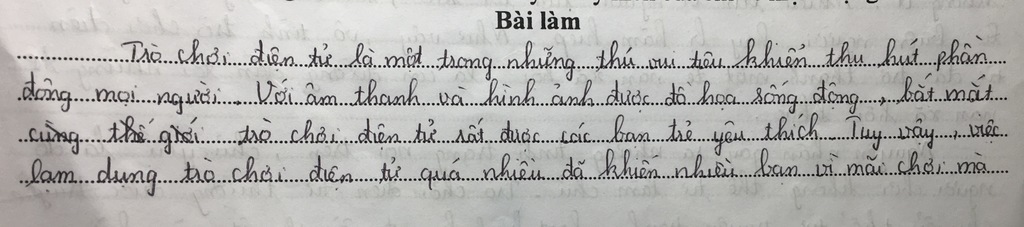 Bài làm
Trò chơi điện tử là một trong những thú vui tiêu khiển thu hút phần
đông mọi người. Với âm thanh và hình ảnh được đồ họa sống động, bắt mắt
cùng thế giới trò chơi điện tử rất được các bạn trẻ yêu thích. Tuy vậy, việc
lạm dụng trò chơi điện tử quá nhiều đã khiến nhiều bạn vì mãi chơi mà